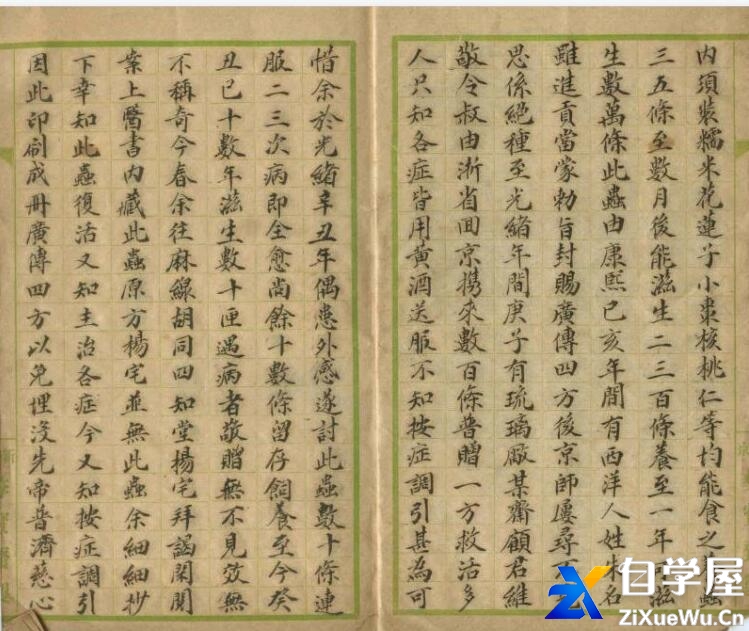 内須裝糯米花蓮子小棗核桃仁等均能食之蟲
三五條至數月後能滋生二三百條養至一年滋
生數萬條此蟲由康熙己亥年間有西洋人姓朱名
雖進貢當蒙勅旨封賜廣傳四方後京師屢尋
思係絕種至光緒年間庚子有琉璃廠某齋顧君維
敬令叔由浙省回京携來數百條普贈一方救活多
人只知各症皆用黄酒送服不知按症調引甚為可
惜余於光緒辛丑年偶患外感遂討此蟲數十條連
服二三次病即全愈尚餘十數條留存飼養至今癸
丑已十數年滋生數十匣遇病者敬贈無不見效無
不稱奇今春余往麻線胡同四知堂楊宅拜謁閑閱
案上醫書内藏此蟲原方楊宅並無此蟲余細細抄
下幸知此蟲復活又知主治各症今又知按症調引
因此印刷成册廣傳四方以免埋沒先帝普濟慈心
自学屋
ZiXueWu.Cn